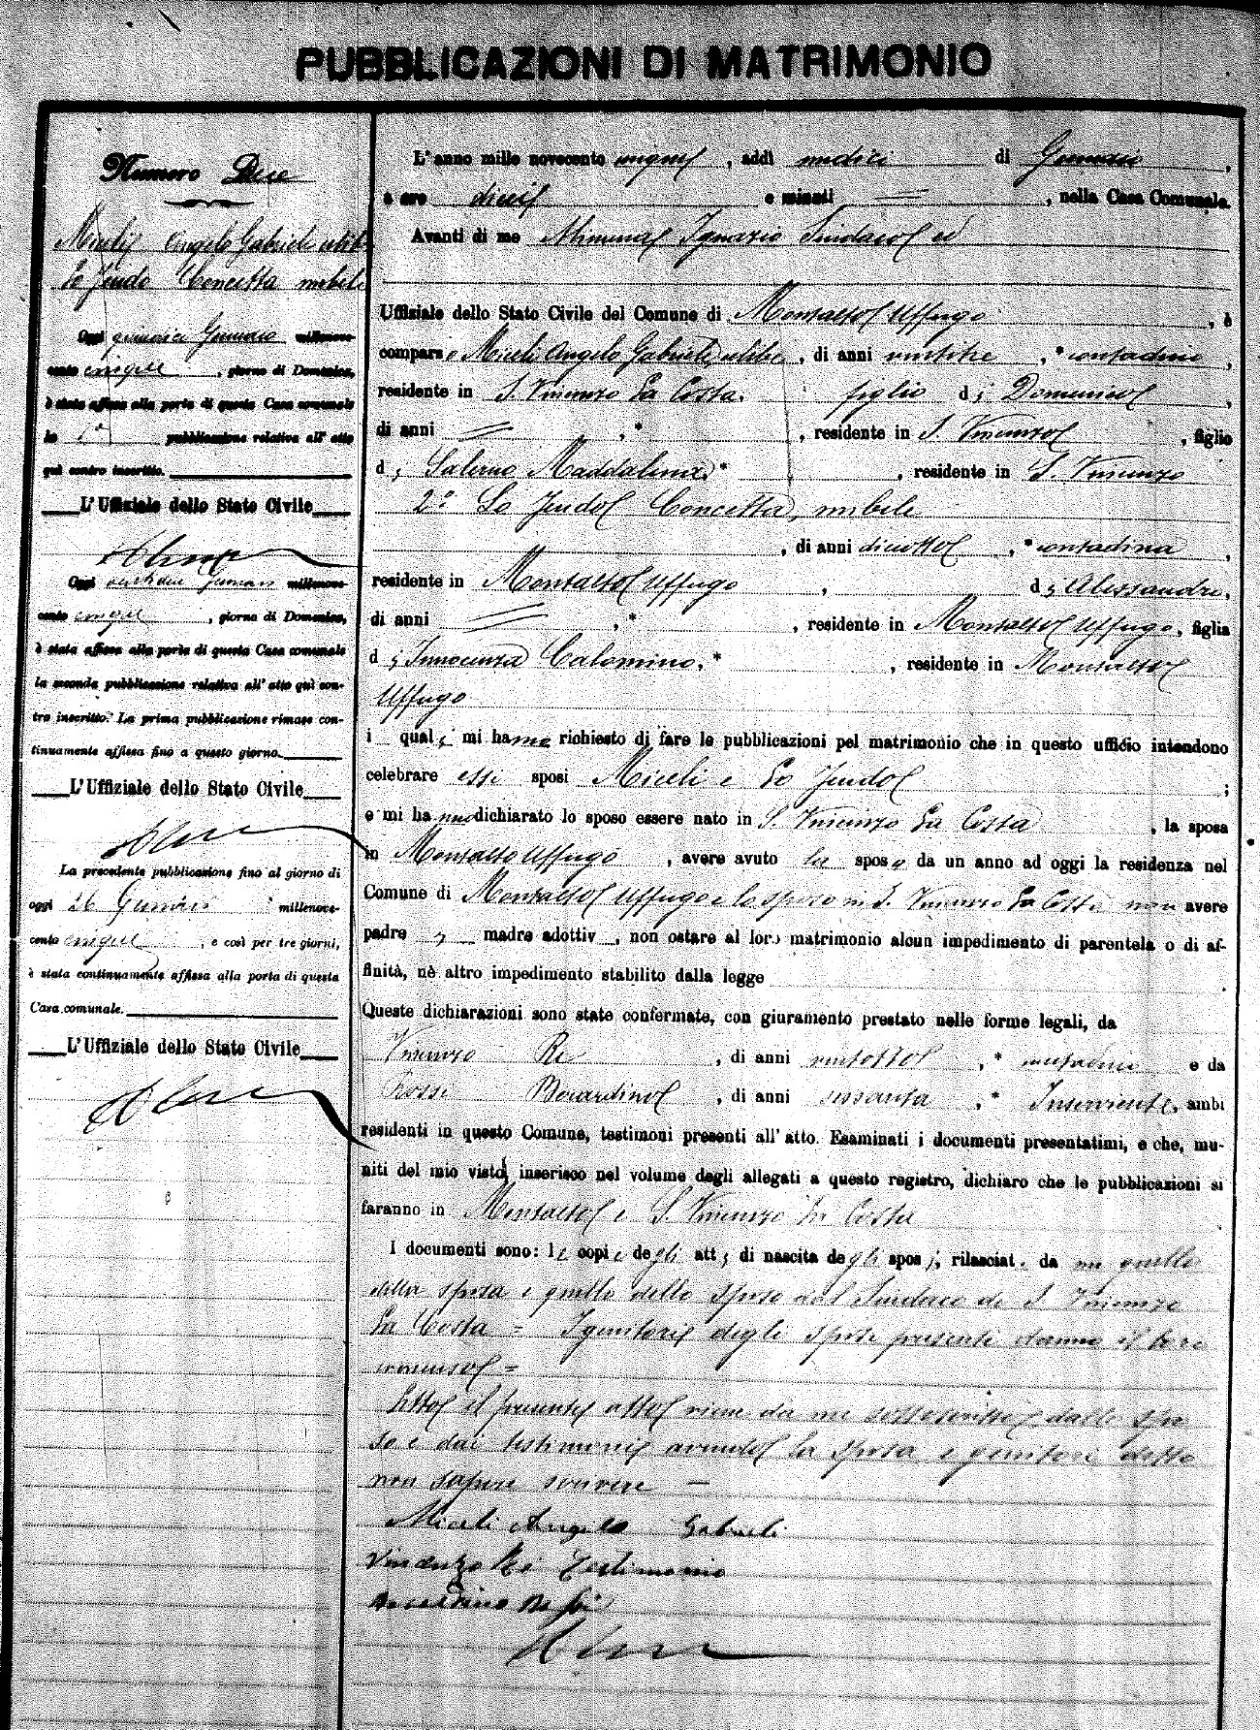 PUBBLICAZIONI DI MATRIMONIO
Numero Due
Miceli Angelo Gabriele celibe
Lo Feudo Concetta nubile
Oggi quindici Gennaio millenove-
cento cinque, giorno di Domenica,
è stata affissa alla porta di questa Casa comunale
la 1a pubblicazione relativa all'atto
quì contro inscritto.
L'Uffiziale dello Stato Civile
Oggi ventidue Gennaio millenove-
cento cinque, giorno di Domenica,
è stata affissa alla porta di questa Casa comunale
la seconda pubblicazione relativa all'atto quì con-
tro inscritto. La prima pubblicazione rimase con-
tinuamente affissa fino a questo giorno.
L'Uffiziale dello Stato Civile
La precedente pubblicazione fino al giorno di
oggi 26 Gennaio millenove-
cento cinque, e così per tre giorni,
è stata continuamente affissa alla porta di questa
Casa comunale.
L'Uffiziale dello Stato Civile
L'anno mille novecento cinque, addì undici di Gennaio,
a ore dieci e minuti =, nella Casa Comunale.
Avanti di me Ignazio Sindaco ed
Uffiziale dello Stato Civile del Comune di Montalto Uffugo, è
comparso Miceli Angelo Gabriele, celibe, di anni ventitre, * contadino,
residente in S. Vincenzo La Costa. figlio di Domenico,
di anni =, * , residente in S. Vincenzo, figlio
di Salerno Maddalena * , residente in S. Vincenzo
2° Lo Feudo Concetta, nubile
, di anni diciotto, * contadina,
residente in Montalto Uffugo, di Alessandro,
di anni =, * , residente in Montalto Uffugo, figlia
di Innocenza Calomino, * , residente in Montalto
Uffugo
i quali mi hanno richiesto di fare le pubblicazioni pel matrimonio che in questo ufficio intendono
celebrare essi sposi Miceli e Lo Feudo ;
e mi hanno dichiarato lo sposo essere nato in S. Vincenzo La Costa, la sposa
in Montalto Uffugo, avere avuto la sposa da un anno ad oggi la residenza nel
Comune di Montalto Uffugo e lo sposo in S. Vincenzo La Costa non avere
padre, madre adottiv , non ostare al loro matrimonio alcun impedimento di parentela o di af-
finità, nè altro impedimento stabilito dalla legge
Queste dichiarazioni sono state confermate, con giuramento prestato nelle forme legali, da
Vincenzo Re, di anni ventotto, * contadino e da
Rossi Berardino, di anni sessanta, * Inserviente, ambi
residenti in questo Comune, testimoni presenti all'atto. Esaminati i documenti presentatimi, e che, mu-
niti del mio visto, inserisco nel volume degli allegati a questo registro, dichiaro che le pubblicazioni si
faranno in Montalto e S. Vincenzo La Costa
I documenti sono: le copie degli atti di nascita degli sposi, rilasciat. da me quello
della sposa e quello dello sposo dal Sindaco di S. Vincenzo
La Costa = I genitori degli sposi presenti danno il loro
consenso =
Letto il presente atto viene da me sottoscritto, dallo spo
so e dai testimoni avendo la sposa e genitori detto
non sapere scrivere —
Miceli Angelo Gabriele
Vincenzo Re Testimonio
Berardino Rossi